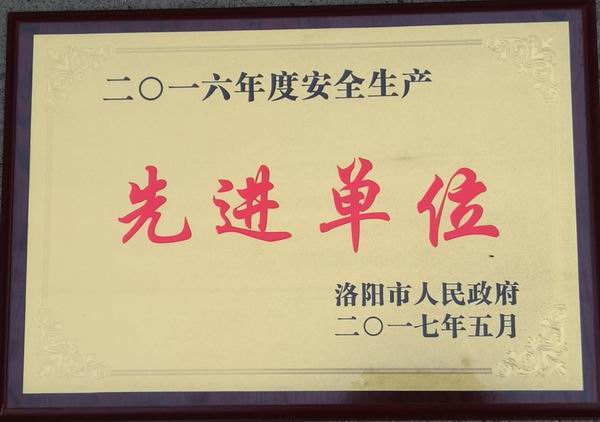 二〇一六年度安全生产
先进单位
洛阳市人民政府
二〇一七年五月